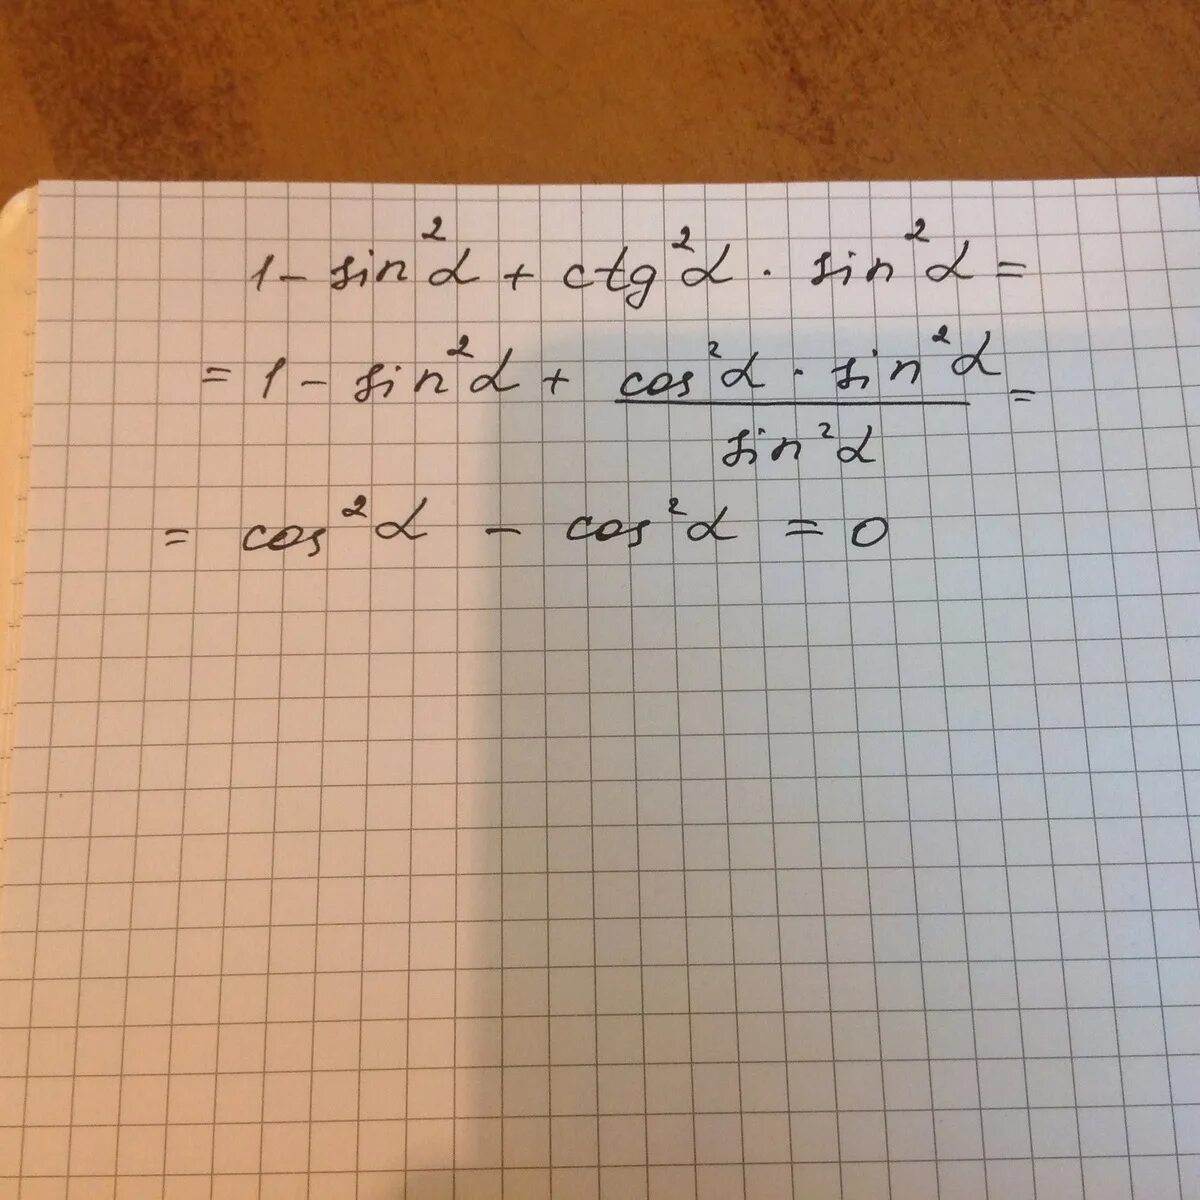 1 - sin²α + ctg²α · sin²α =
= 1 - sin²α + cos²α · sin²α / sin²α =
= cos²α - cos²α = 0